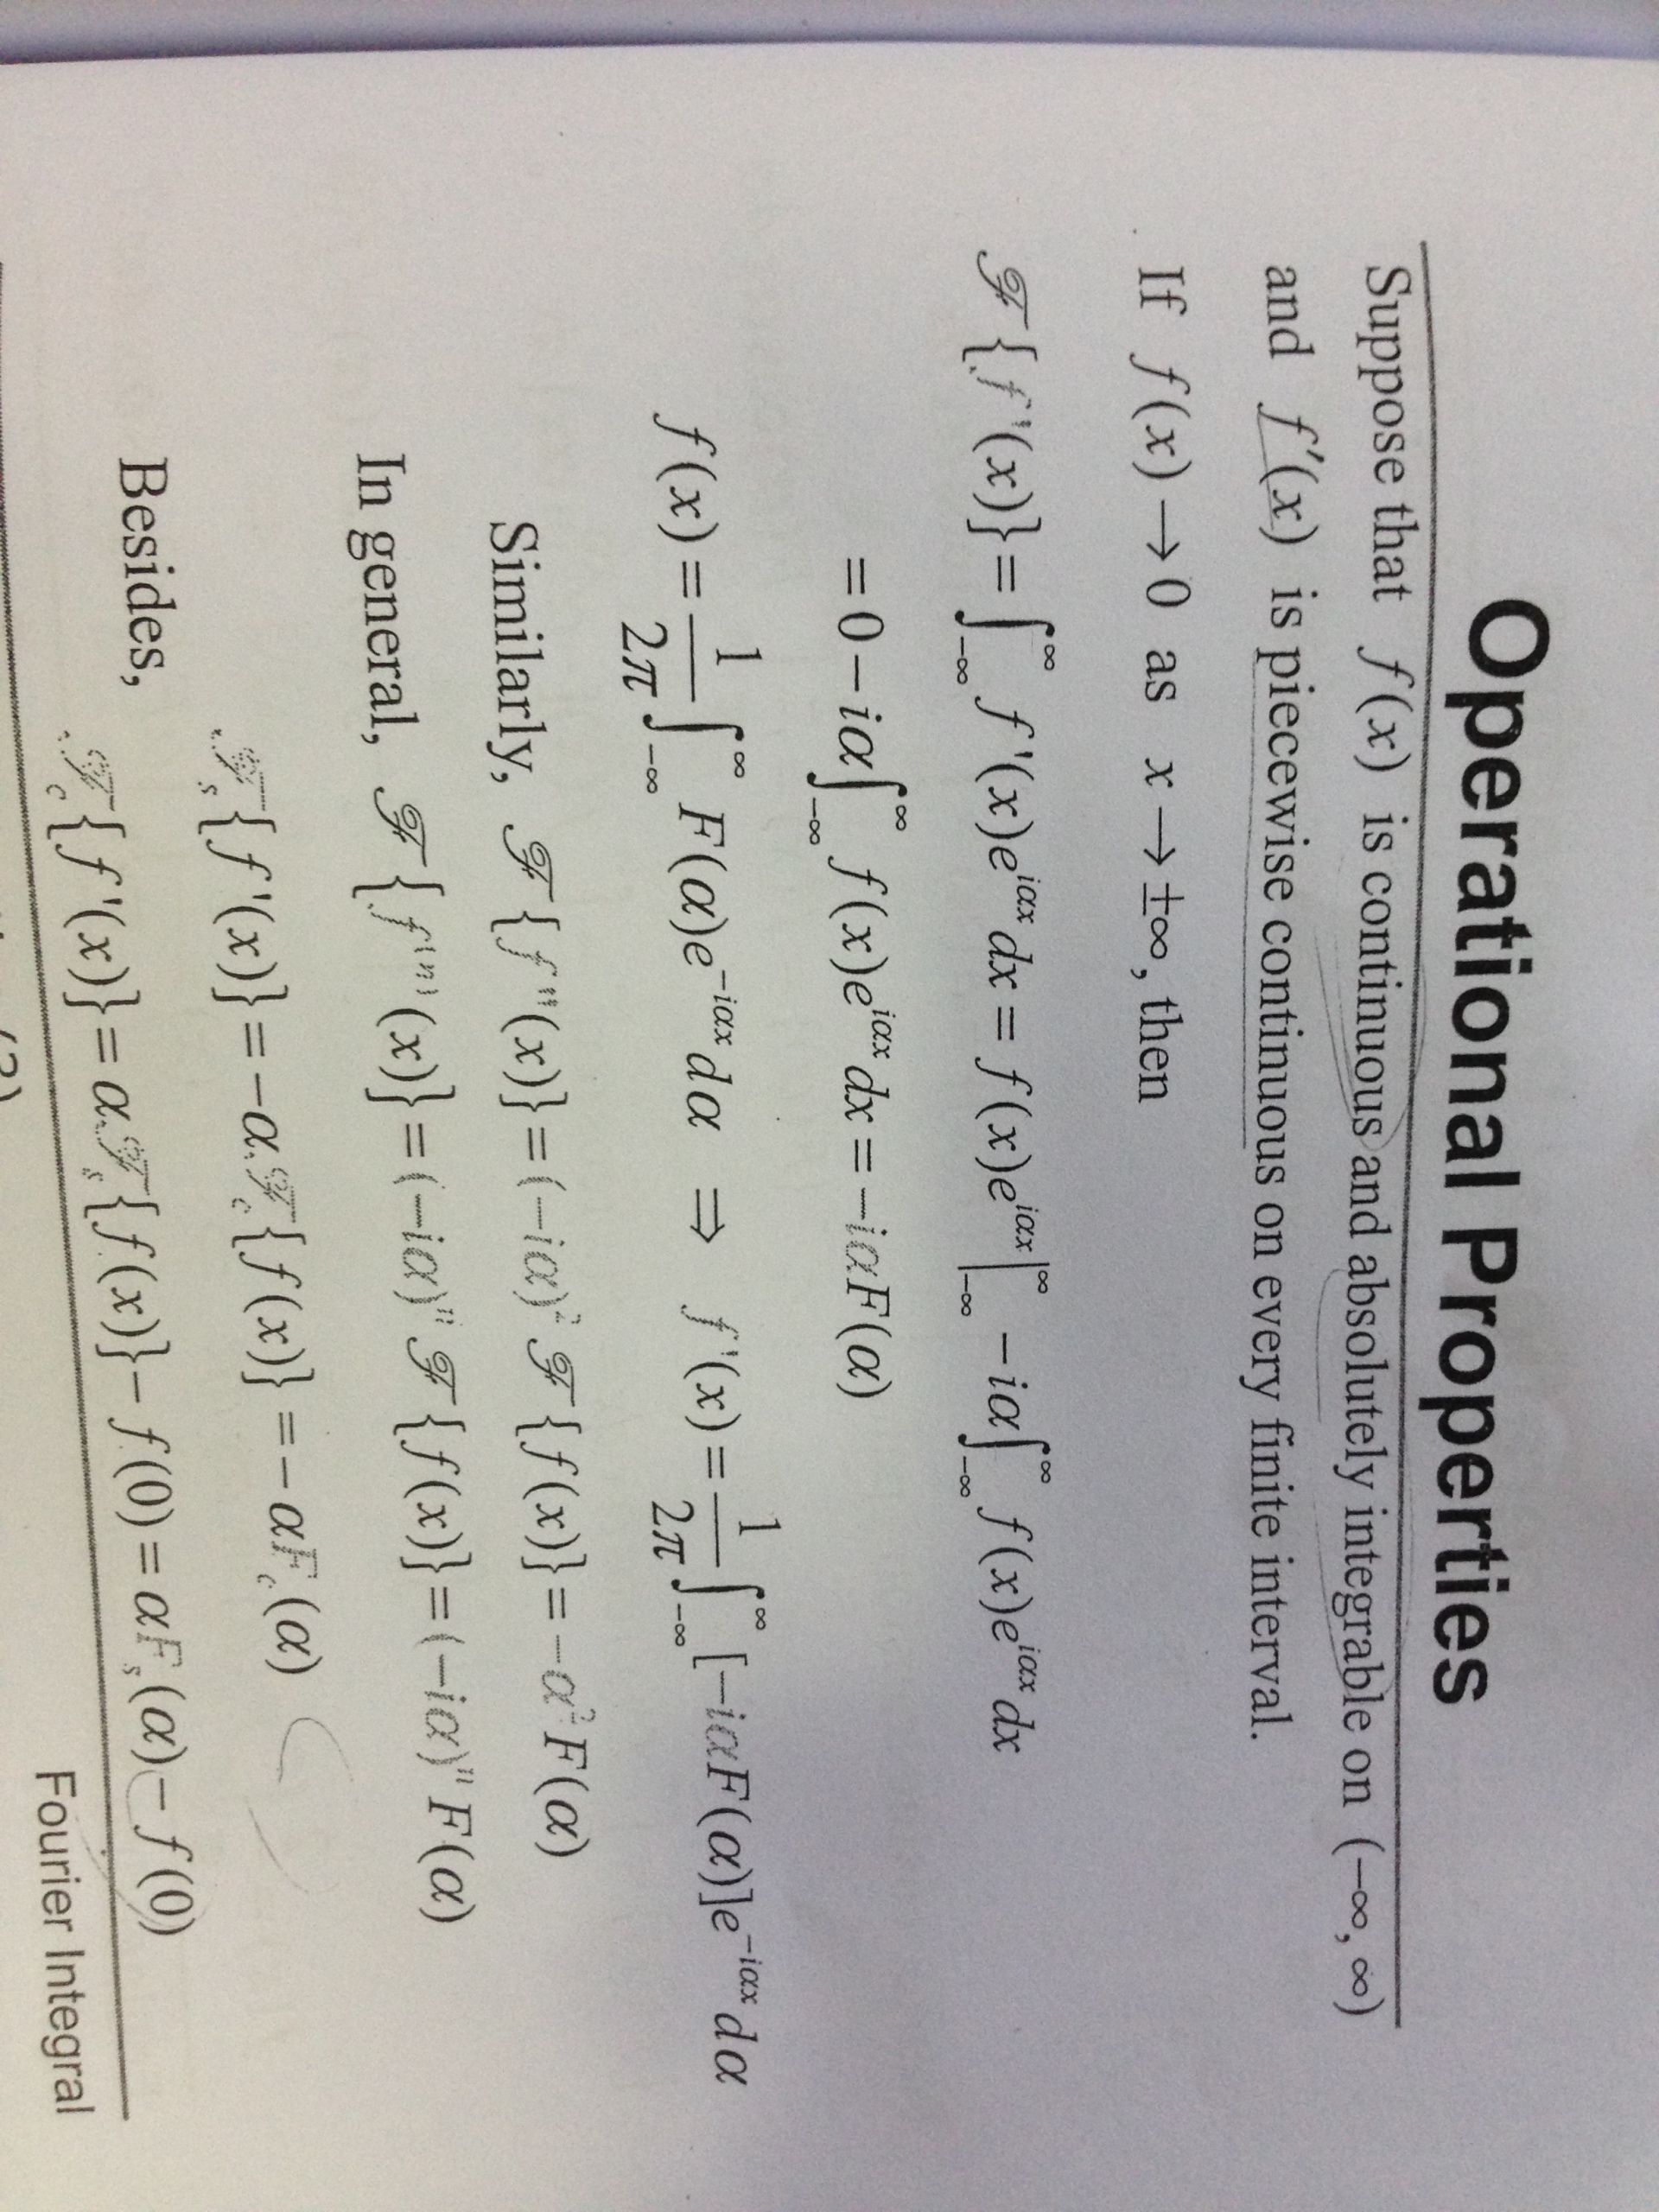 Operational Properties
Suppose that f(x) is continuous and absolutely integrable on (−∞, ∞)
and f′(x) is piecewise continuous on every finite interval.
If f(x) → 0 as x → ±∞, then
ℱ{f'(x)} = ∫_{−∞}^{∞} f'(x)e^{iαx} dx = f(x)e^{iαx}|_{−∞}^{∞} − iα∫_{−∞}^{∞} f(x)e^{iαx} dx
= 0 − iα∫_{−∞}^{∞} f(x)e^{iαx} dx = −iαF(α)
f(x) = 1/2π ∫_{−∞}^{∞} F(α)e^{−iαx} dα ⇒ f'(x) = 1/2π ∫_{−∞}^{∞} [−iαF(α)]e^{−iαx} dα
Similarly, ℱ{f''(x)} = (−iα)² ℱ{f(x)} = −α²F(α)
In general, ℱ{f⁽ⁿ⁾(x)} = (−iα)ⁿ ℱ{f(x)} = (−iα)ⁿ F(α)
ℱₛ{f'(x)} = −αℱ_c{f(x)} = −αF_c(α)
Besides,
ℱ_c{f'(x)} = αℱₛ{f(x)} − f(0) = αFₛ(α) − f(0)
Fourier Integral